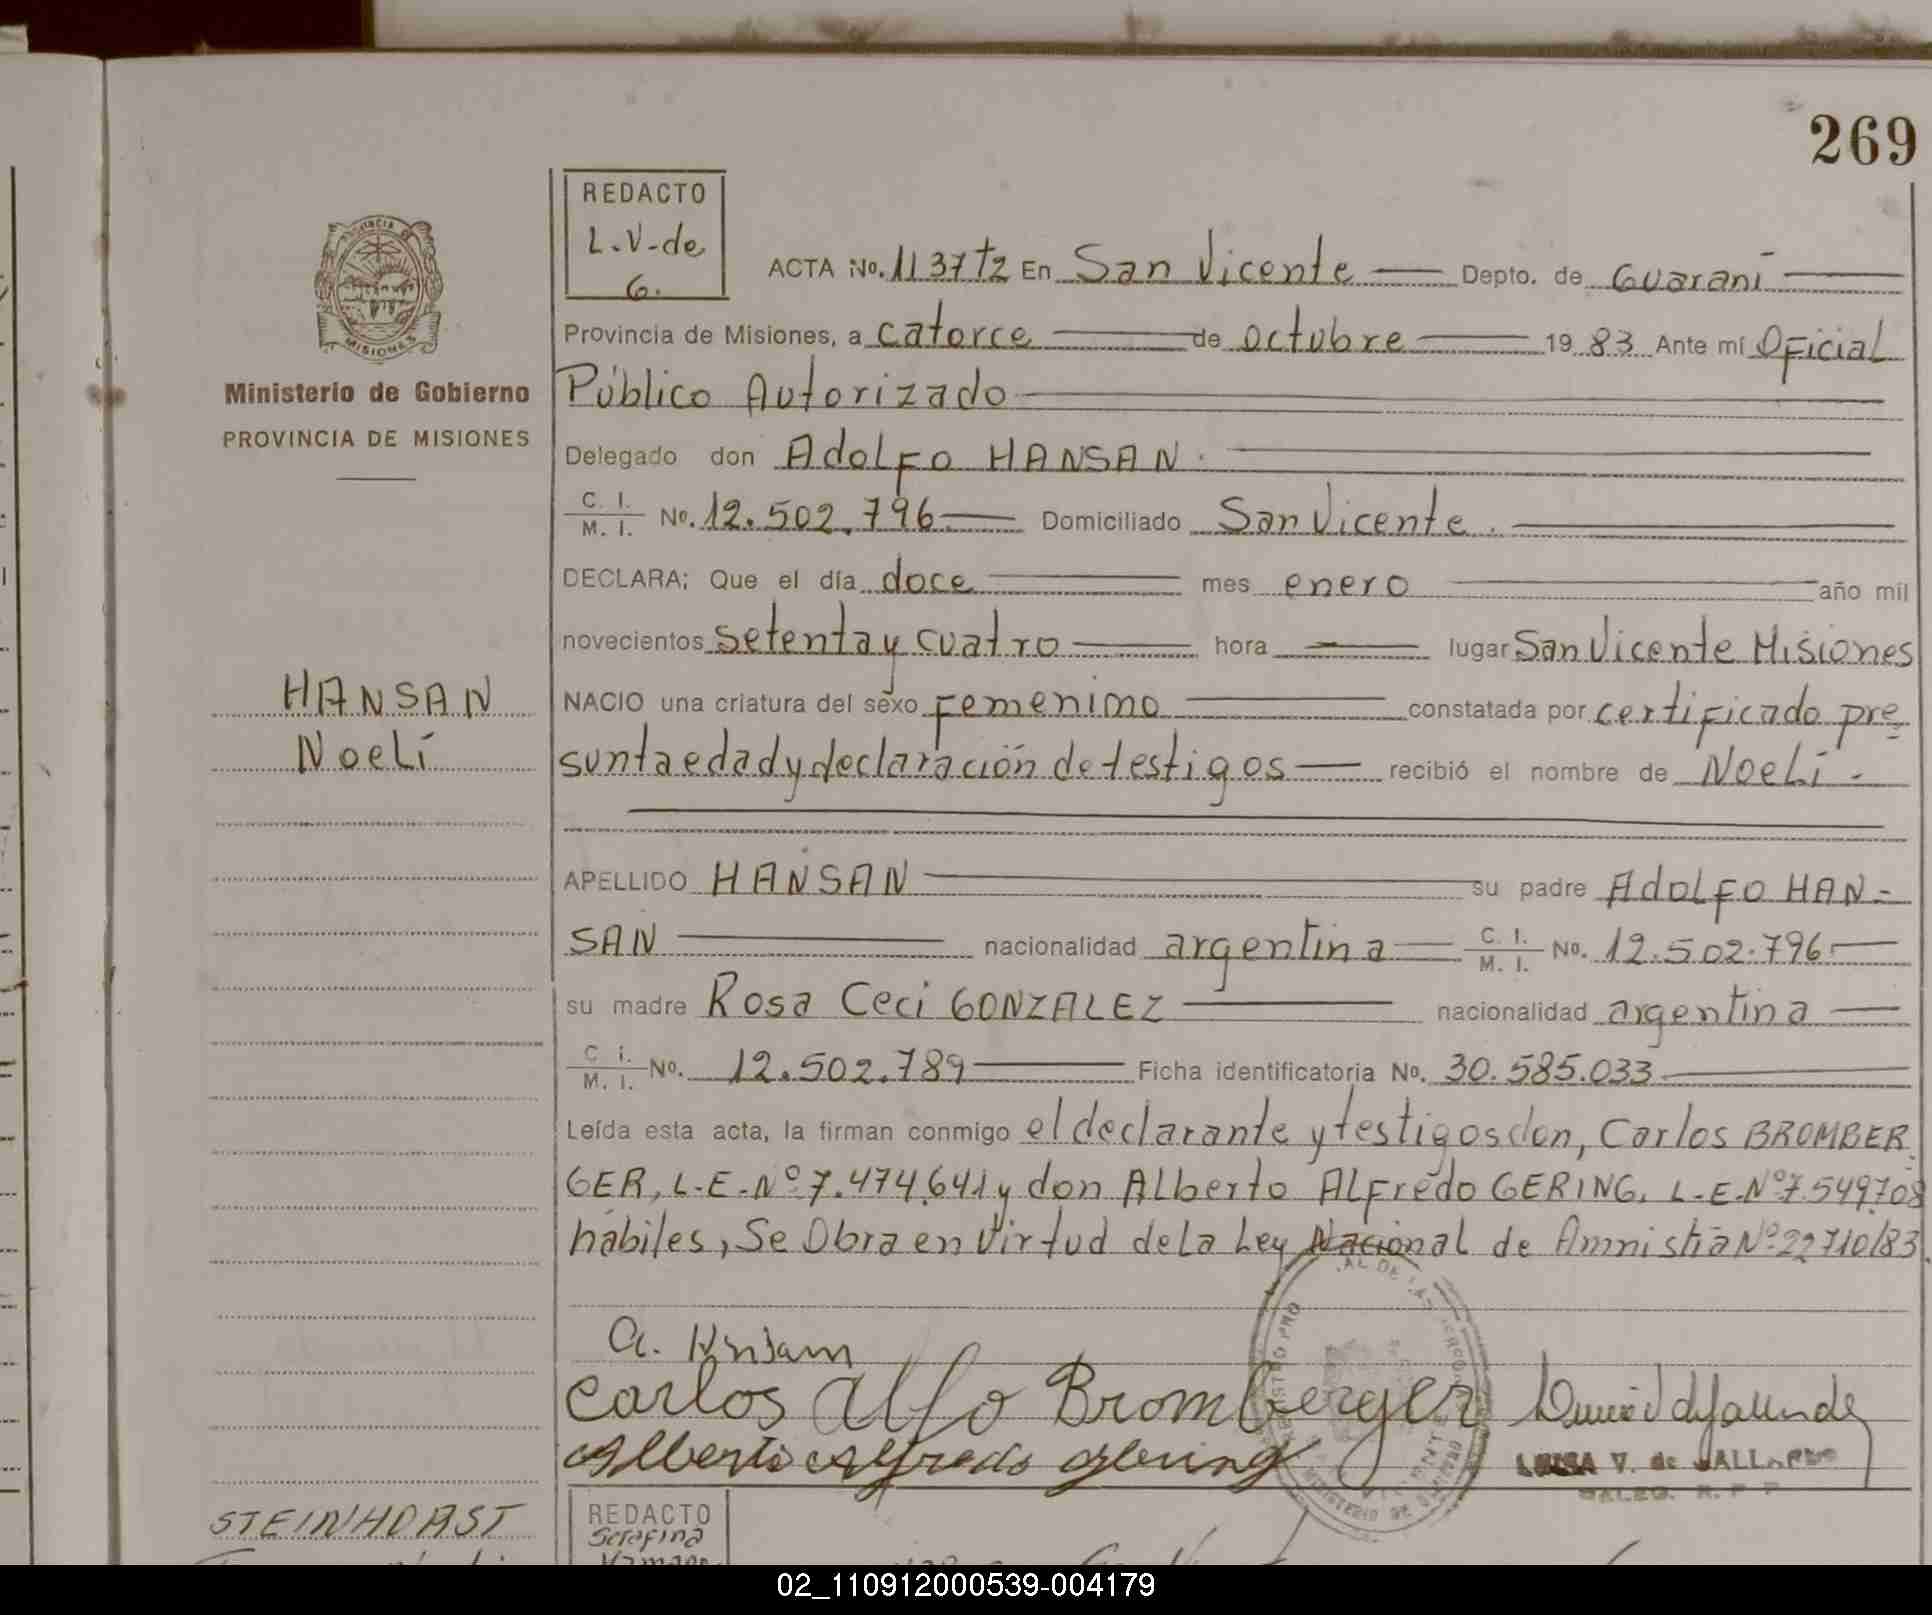 269
REDACTO
L.V. de
G.
ACTA No. 1137 T2 En San Vicente Depto. de Guaraní
Provincia de Misiones, a catorce de octubre 19 83 Ante mí Oficial
Público Autorizado
Delegado don Adolfo HANSAN.
C. I.
M. I. No. 12.502.796 Domiciliado San Vicente.
DECLARA; Que el día doce mes enero año mil
novecientos setenta y cuatro hora — lugar San Vicente Misiones
NACIO una criatura del sexo Femenino constatada por certificado pre
sunta edad y declaración de testigos recibió el nombre de Noelí.
APELLIDO HANSAN su padre Adolfo HAN-
SAN nacionalidad argentina C. I.
M. I. No. 12.502.796
su madre Rosa Ceci GONZALEZ nacionalidad argentina
C. I.
M. I. No. 12.502.789 Ficha identificatoria No. 30.585.033
Leída esta acta, la firman conmigo el declarante y testigos don, Carlos BROMBER
GER, L.E.Nº 7.474.641 y don Alberto Alfredo GERING, L.E.Nº 7.549.708
habiles, Se Obra en Virtud de La Ley Nacional de Amnistia Nº 22710/83.
PROVINCIA DE
MISIONES
Ministerio de Gobierno
PROVINCIA DE MISIONES
HANSAN
Noelí
Carlos Alfo Bromberger
Alberto Alfredo Gering
LUISA V. de GALLARDO
DELEG. R. P. P.
STEINHORST
REDACTO
Serafina
02_110912000539-004179